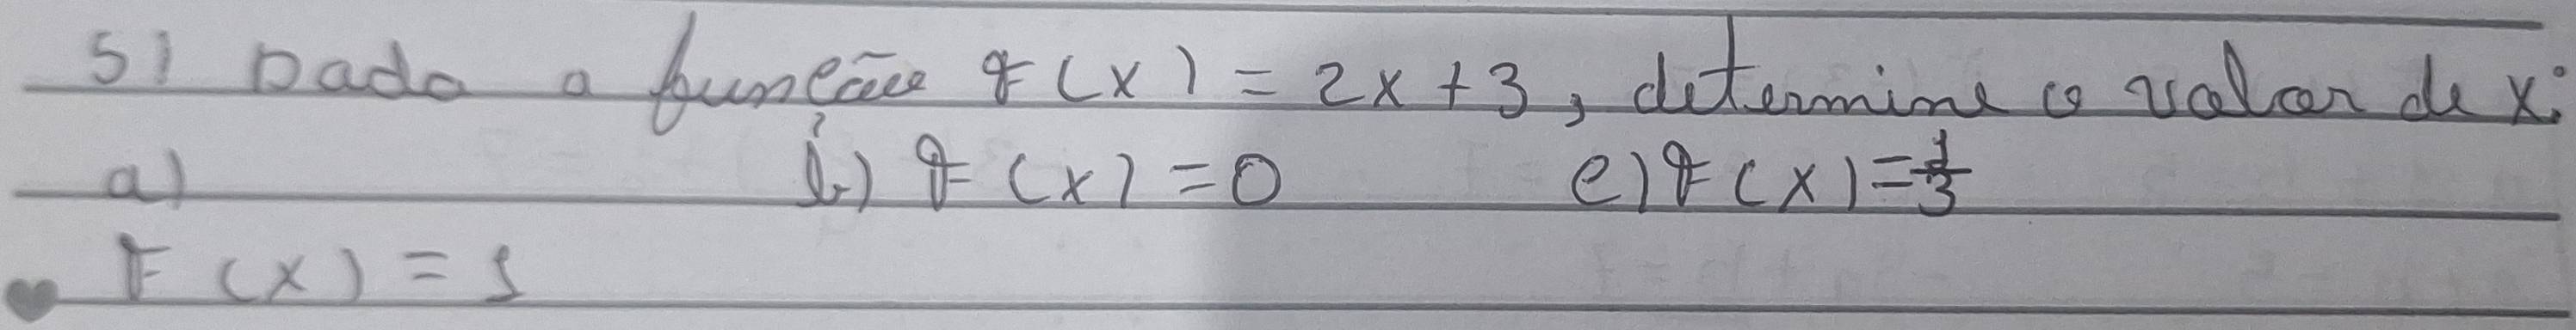 5) Dada a função F(x) = 2x + 3, determine o valor de x:
a) b) F(x) = 0 c) F(x) = 1/3
F(x) = 1